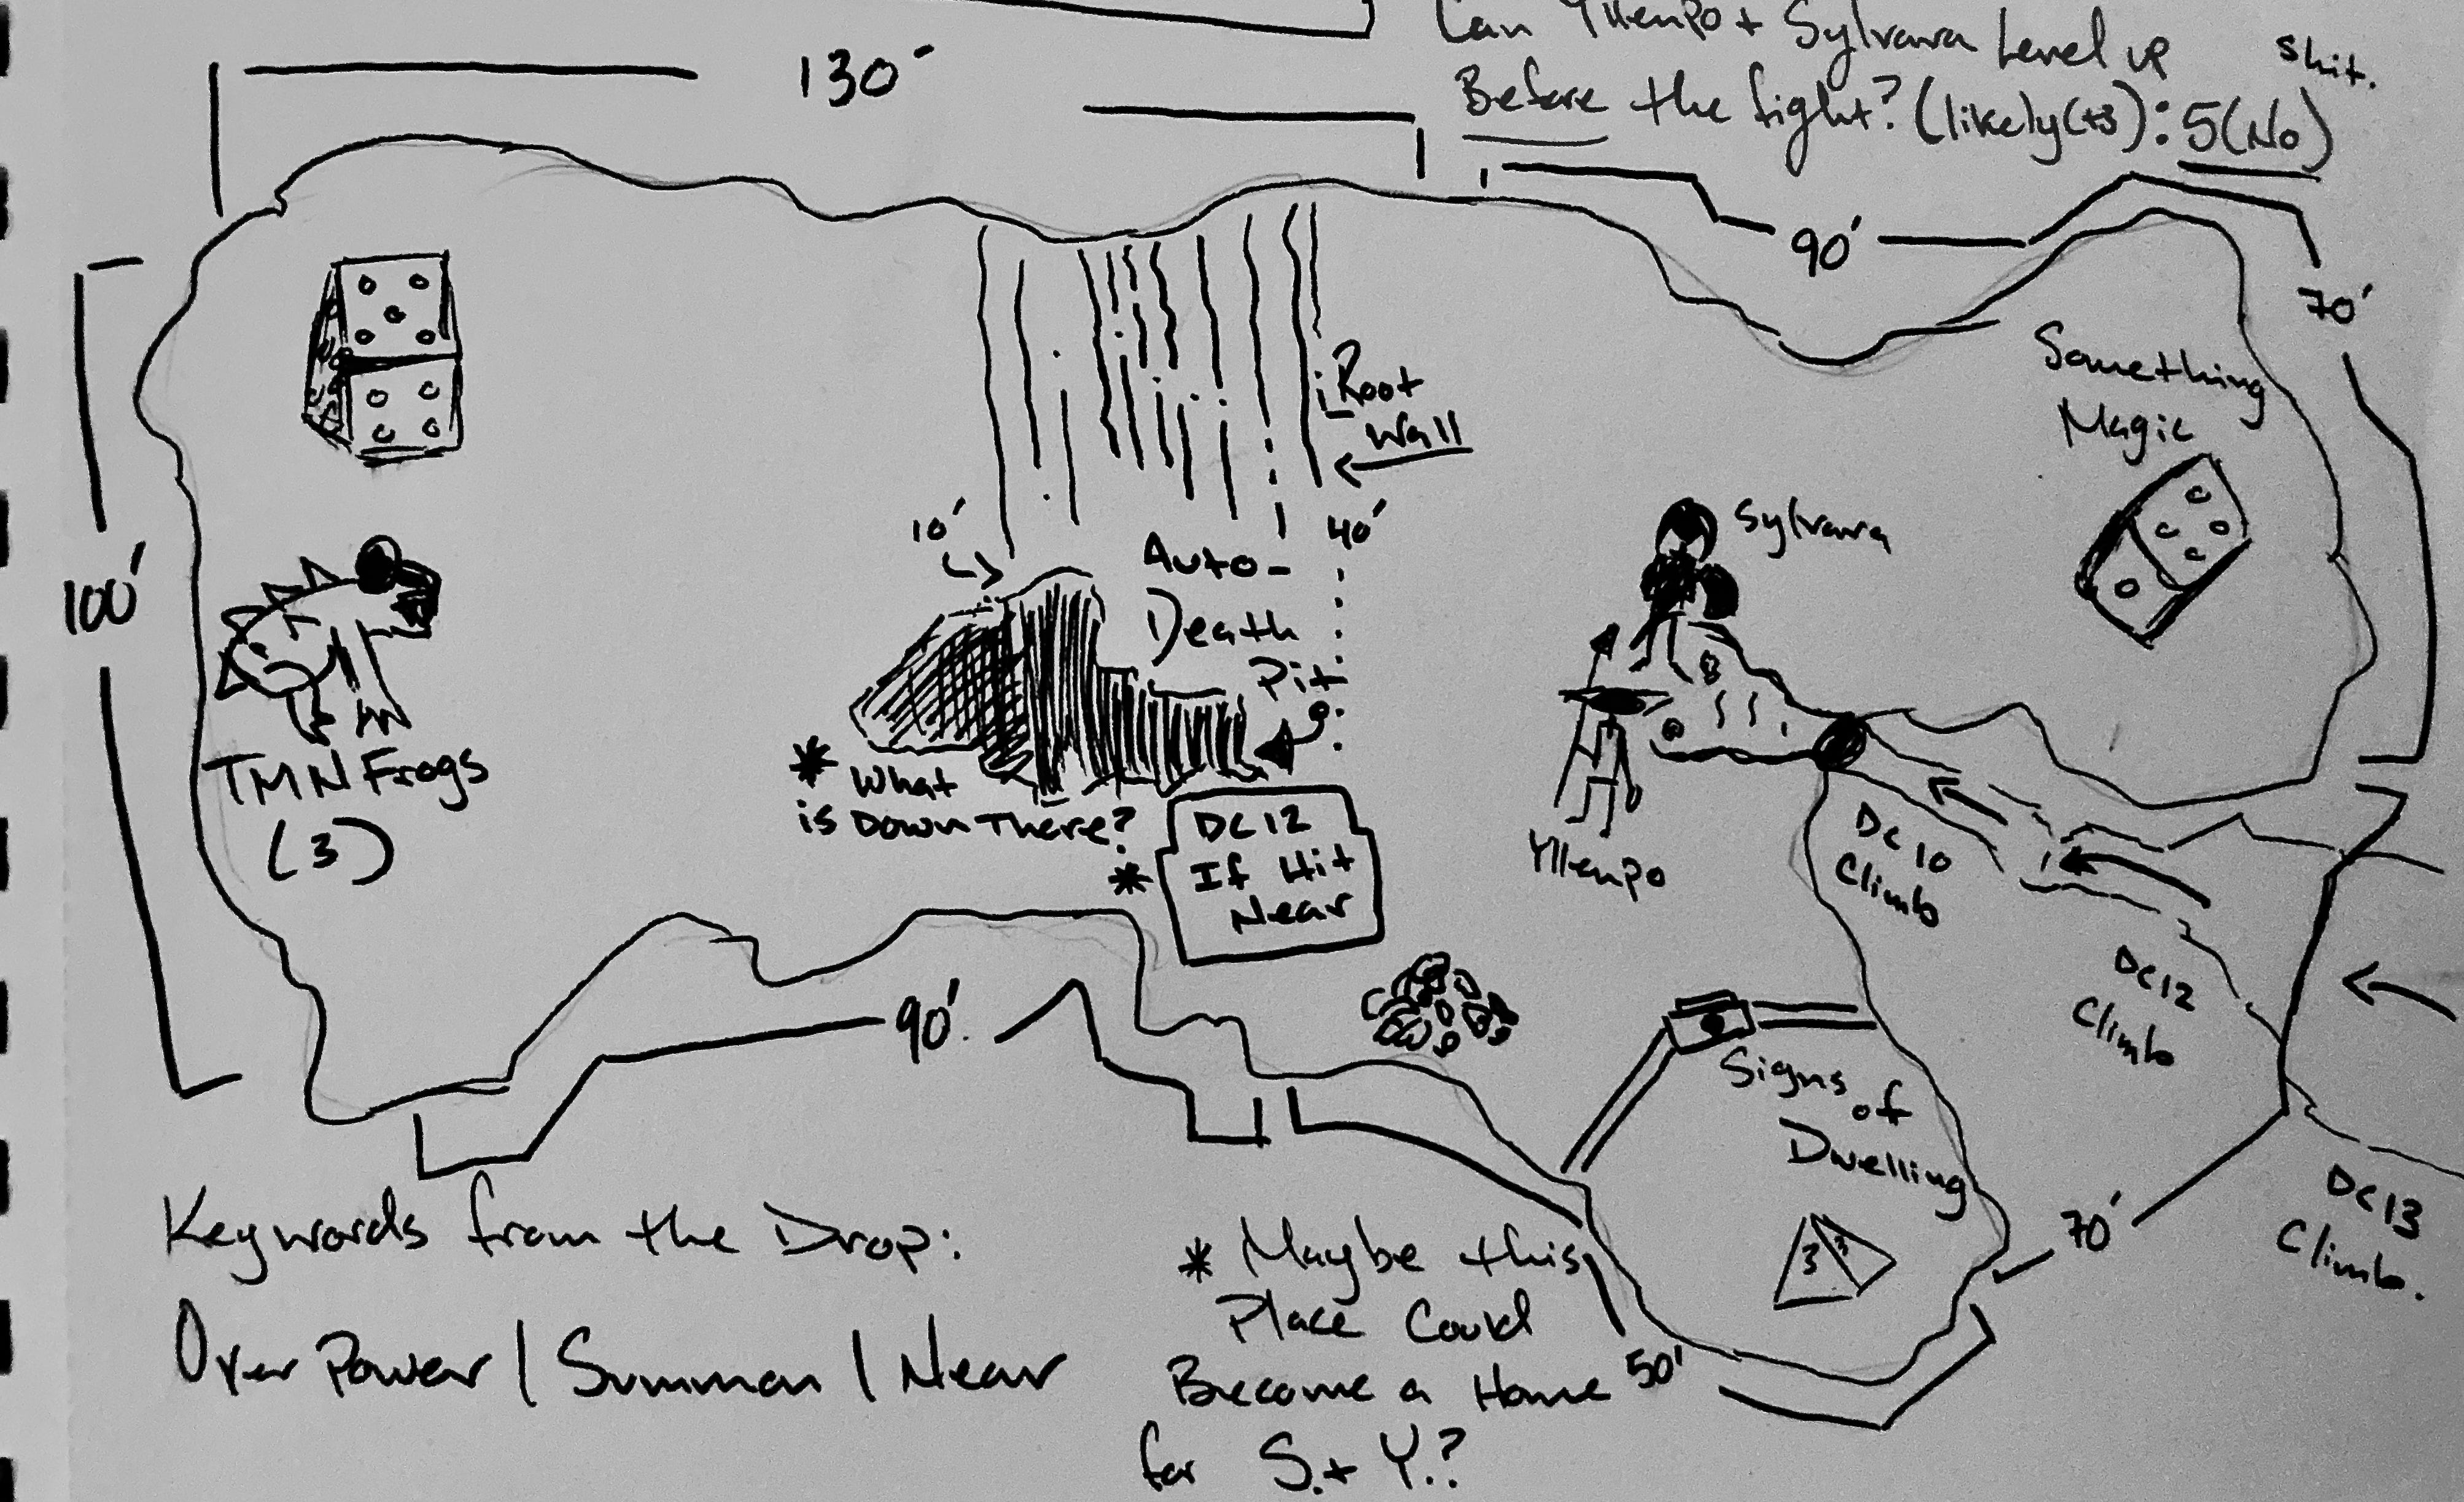 Can Yllenpo + Sylvara Level up
Before the fight? (likely(+3): 5(No)
shit.
130'
90'
70'
Something
Magic
Root
Wall
10'
40'
Auto-
Death
Pit
Sylvara
100'
TMN Frogs
(3)
* What
is Down There?
* DC 12
If Hit
Near
Yllenpo
DC 10
Climb
DC 12
Climb
DC 13
Climb.
90'
Signs
of
Dwelling
3 3
70'
50'
Keywords from the Drop:
Over Power / Summon / Near
* Maybe this
Place Could
Become a Home
for S. + Y.?